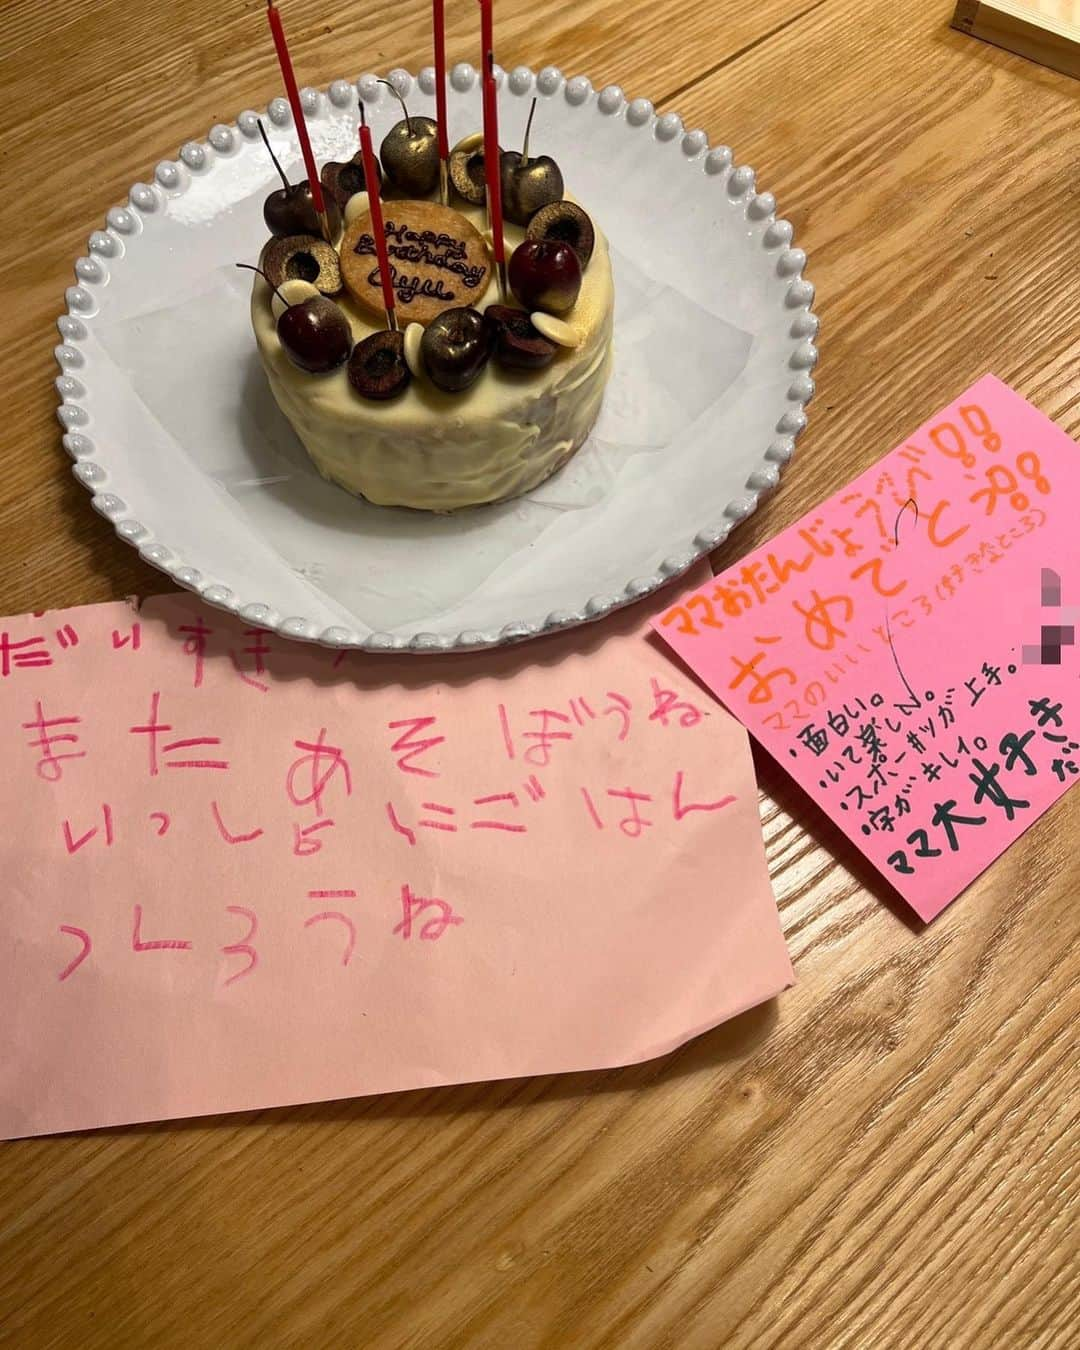 Happy
Birthday
Ayu
だいすき
またあそぼうね
いっしょにごはん
つくろうね
ママおたんじょうび!!
おめでとう!!
ママのいいところ(好きなところ)
・面白い。
・いて楽しい。
・スポーツが上手。
・字がキレイ。
ママ大好き
だ